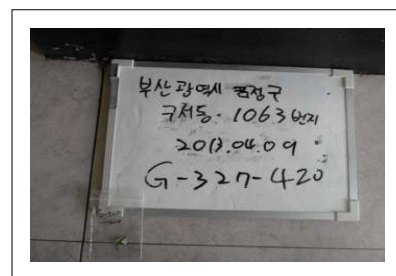 부산광역시 금정구
구서동. 1063번지
2013.04.09.
G-327-420